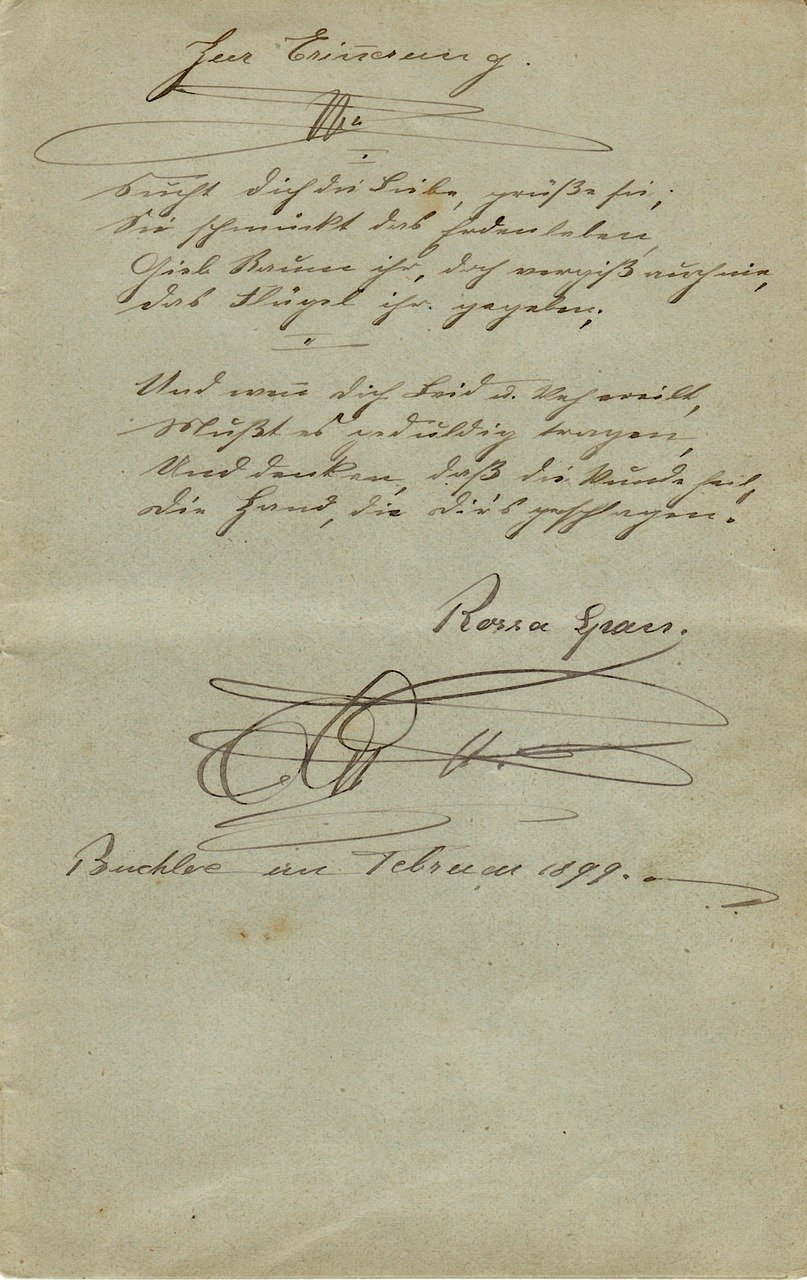 Zur Erin̄erung.
Sucht dich die Liebe, grüße sie;
Sie schmückt das Erdenleben,
Gieb Raum ihr, doch vergiß auch nie,
das Flügel ihr gegeben;
Und wen̄ dich Leid u. Weh ereilt,
Mußt es geduldig tragen,
Und denken, daß die Wunde heilt,
Die Hand, die dir's geschlagen.
Rosa
Buchloe im Februar 1899.